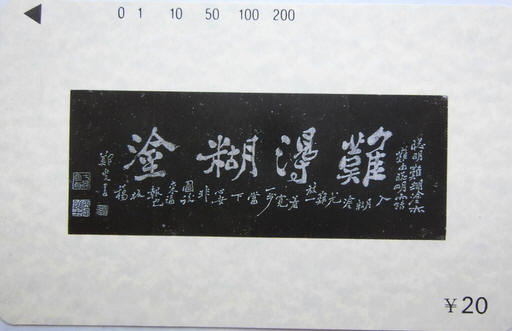 難得糊塗
聰明難糊塗亦
難由聰明而轉
入糊塗尤難放一著退一步當下心安非圖後來福報也
0 1 10 50 100 200
¥20